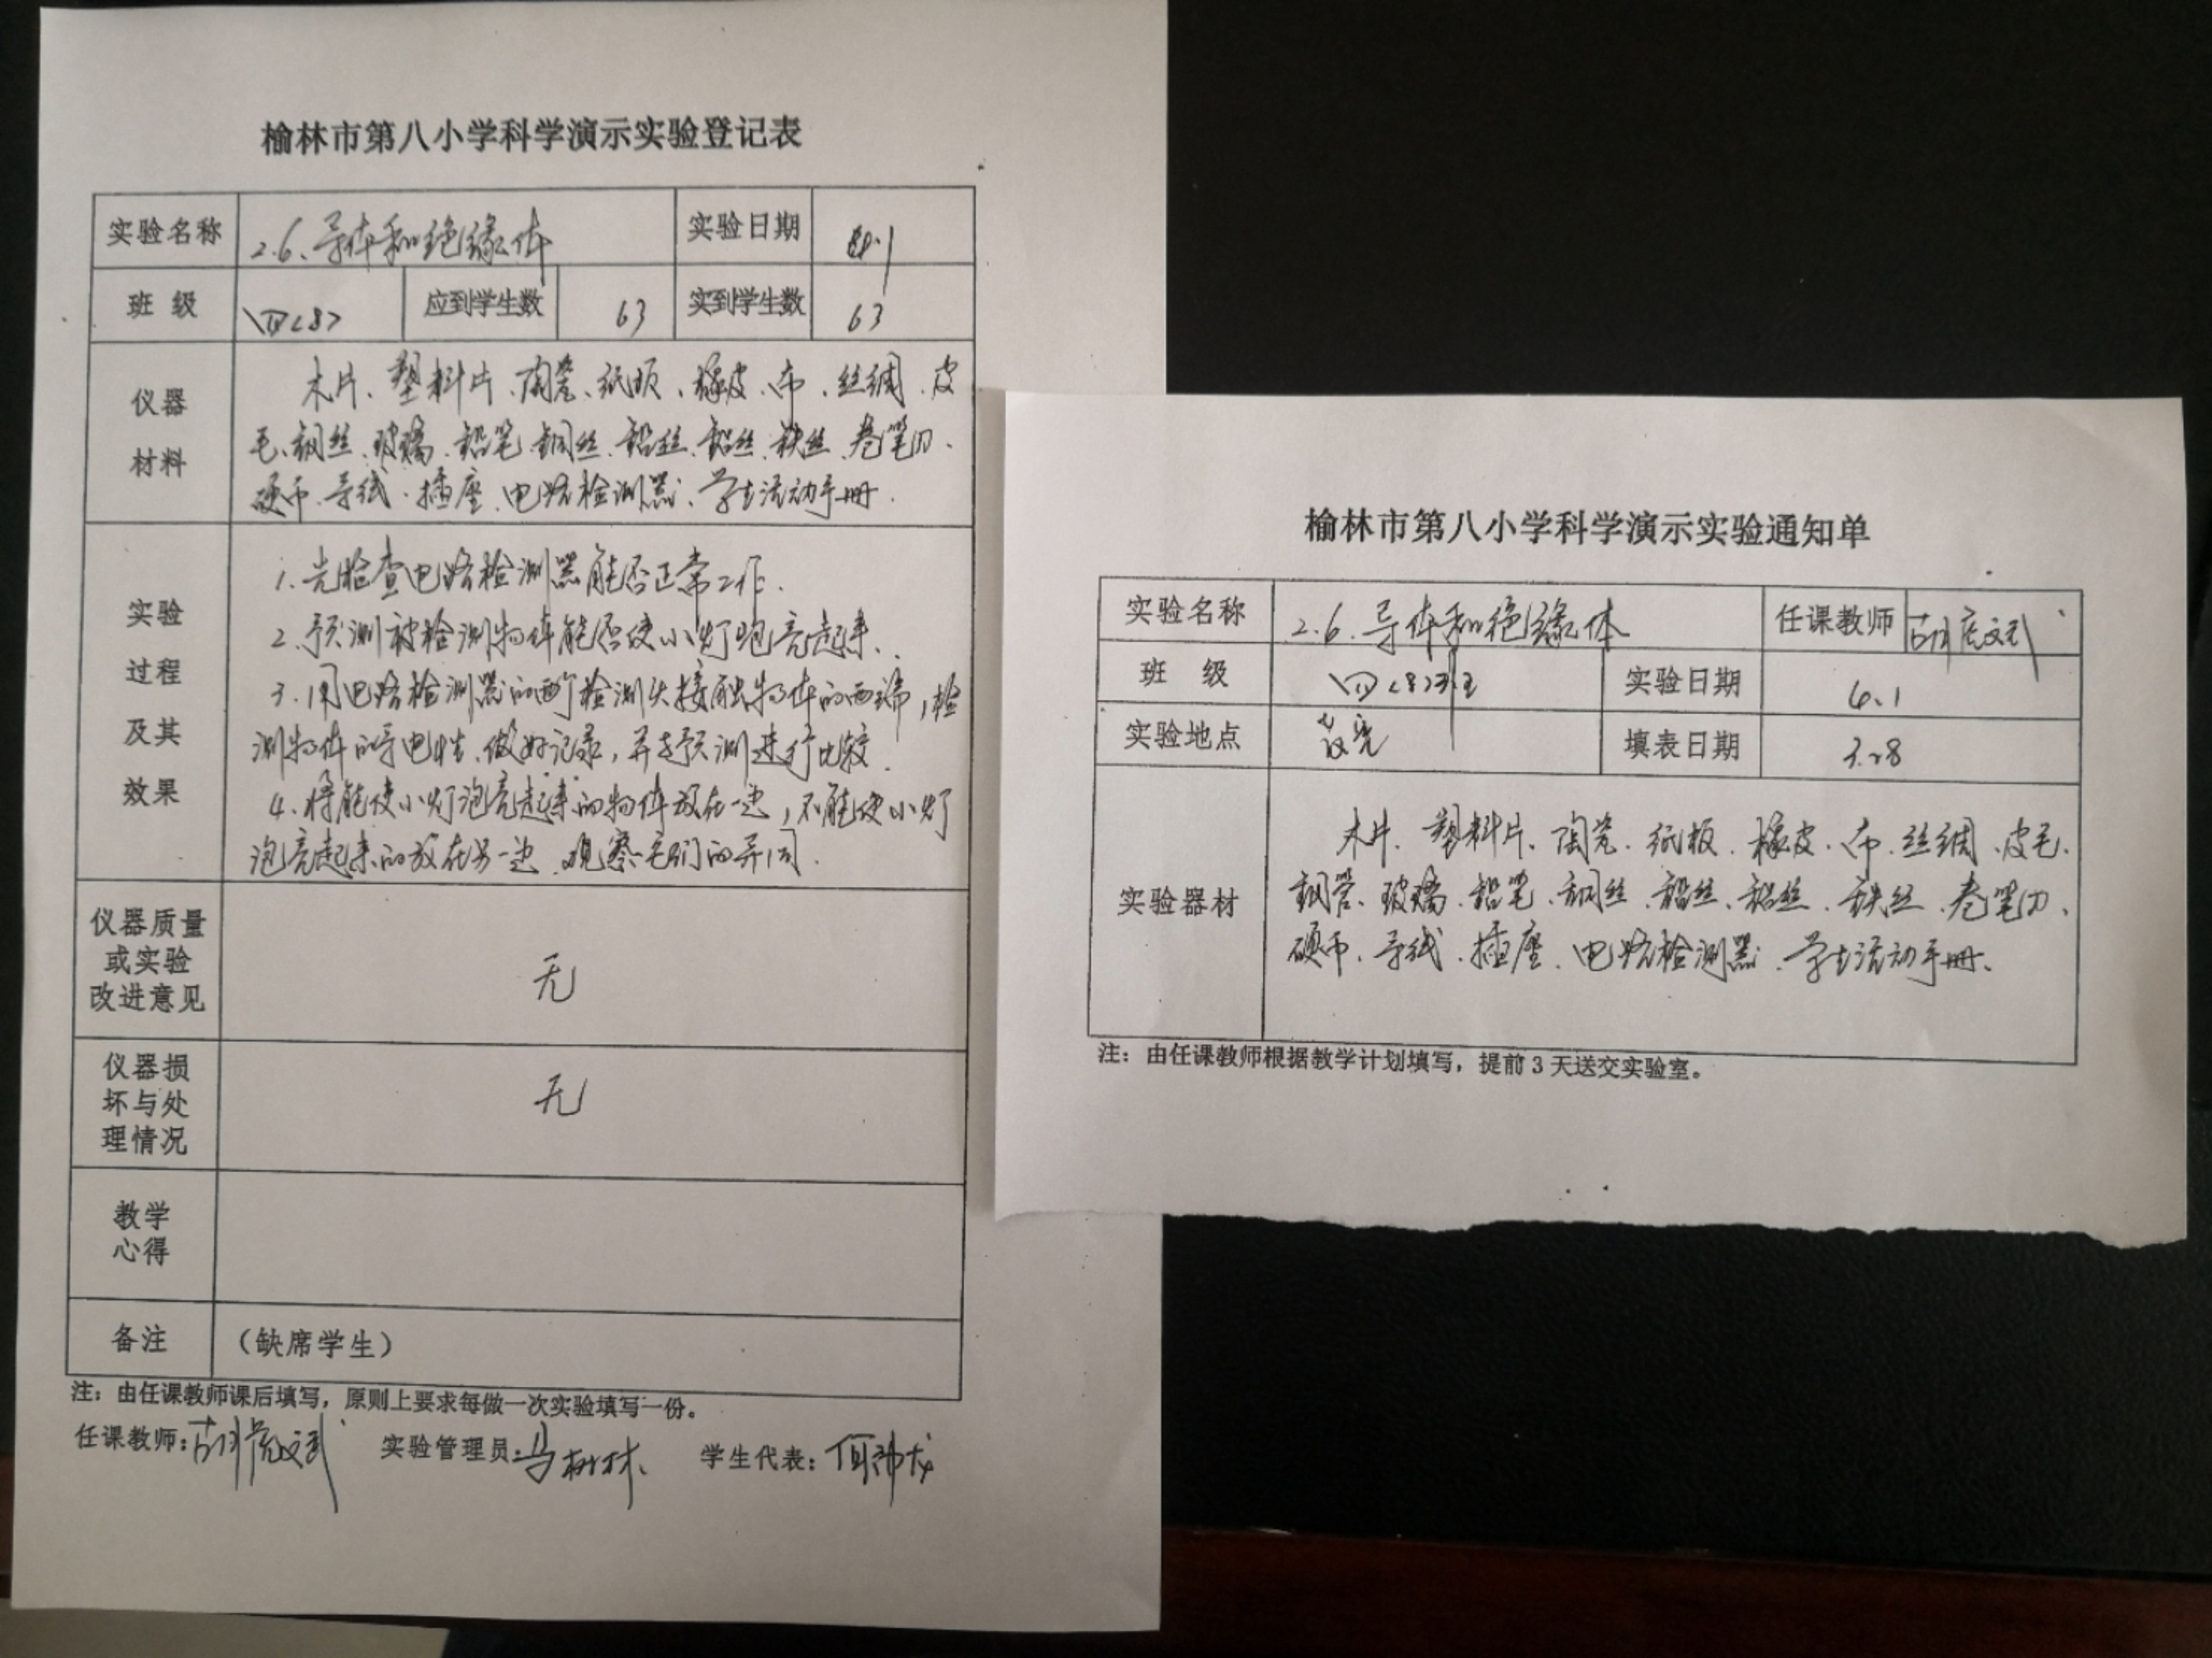 榆林市第八小学科学演示实验登记表
实验名称 2.6、导体和绝缘体 实验日期
班 级 四<8> 应到学生数 63 实到学生数 63
仪器材料
木片、塑料片、陶瓷、纸板、橡皮、布、丝绸、皮
毛、钢丝、玻璃、铅笔、铜丝、铅丝、铝丝、铁丝、卷笔刀、
硬币、导线、插座、电路检测器、学生活动手册.
实验过程及其效果
1.先检查电路检测器能否正常工作.
2.预测被检测物体能否使小灯泡亮起来.
3.用电路检测器的两个检测头接触物体的两端,检
测物体的导电性.做好记录,并与预测进行比较.
4.将能使小灯泡亮起来的物体放在一边,不能使小灯
泡亮起来的放在另一边.观察它们的异同.
仪器质量
或实验
改进意见
无
仪器损
坏与处
理情况
无
教学
心得
备注 (缺席学生)
注:由任课教师课后填写,原则上要求每做一次实验填写一份。
任课教师: 实验管理员:马树林 学生代表:
榆林市第八小学科学演示实验通知单
实验名称 2.6.导体和绝缘体 任课教师
班 级 四<8>班 实验日期
实验地点 教室 填表日期 3.28
实验器材
木片、塑料片、陶瓷、纸板、橡皮、布、丝绸、皮毛、
钢管、玻璃、铅笔、铜丝、铅丝、铝丝、铁丝、卷笔刀、
硬币、导线、插座、电路检测器、学生活动手册、
注:由任课教师根据教学计划填写,提前3天送交实验室。